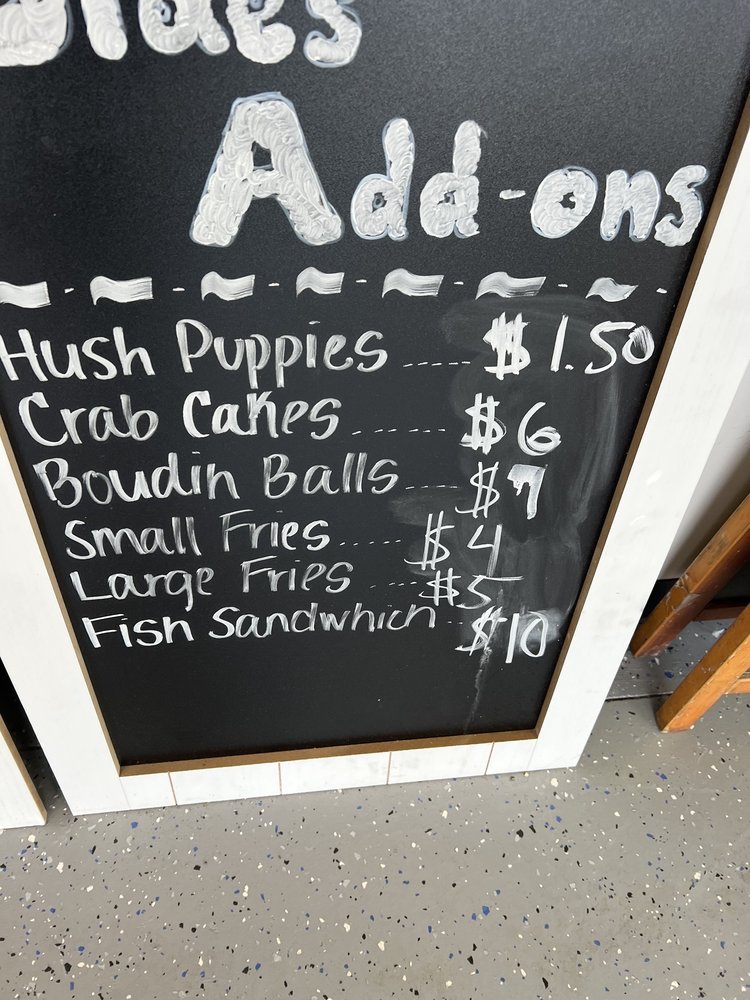 Sides
Add-ons
Hush Puppies ..... $1.50
Crab Cakes ...... $6
Boudin Balls ..... $7
Small Fries ..... $4
Large Fries ..... $5
Fish Sandwhich .. $10